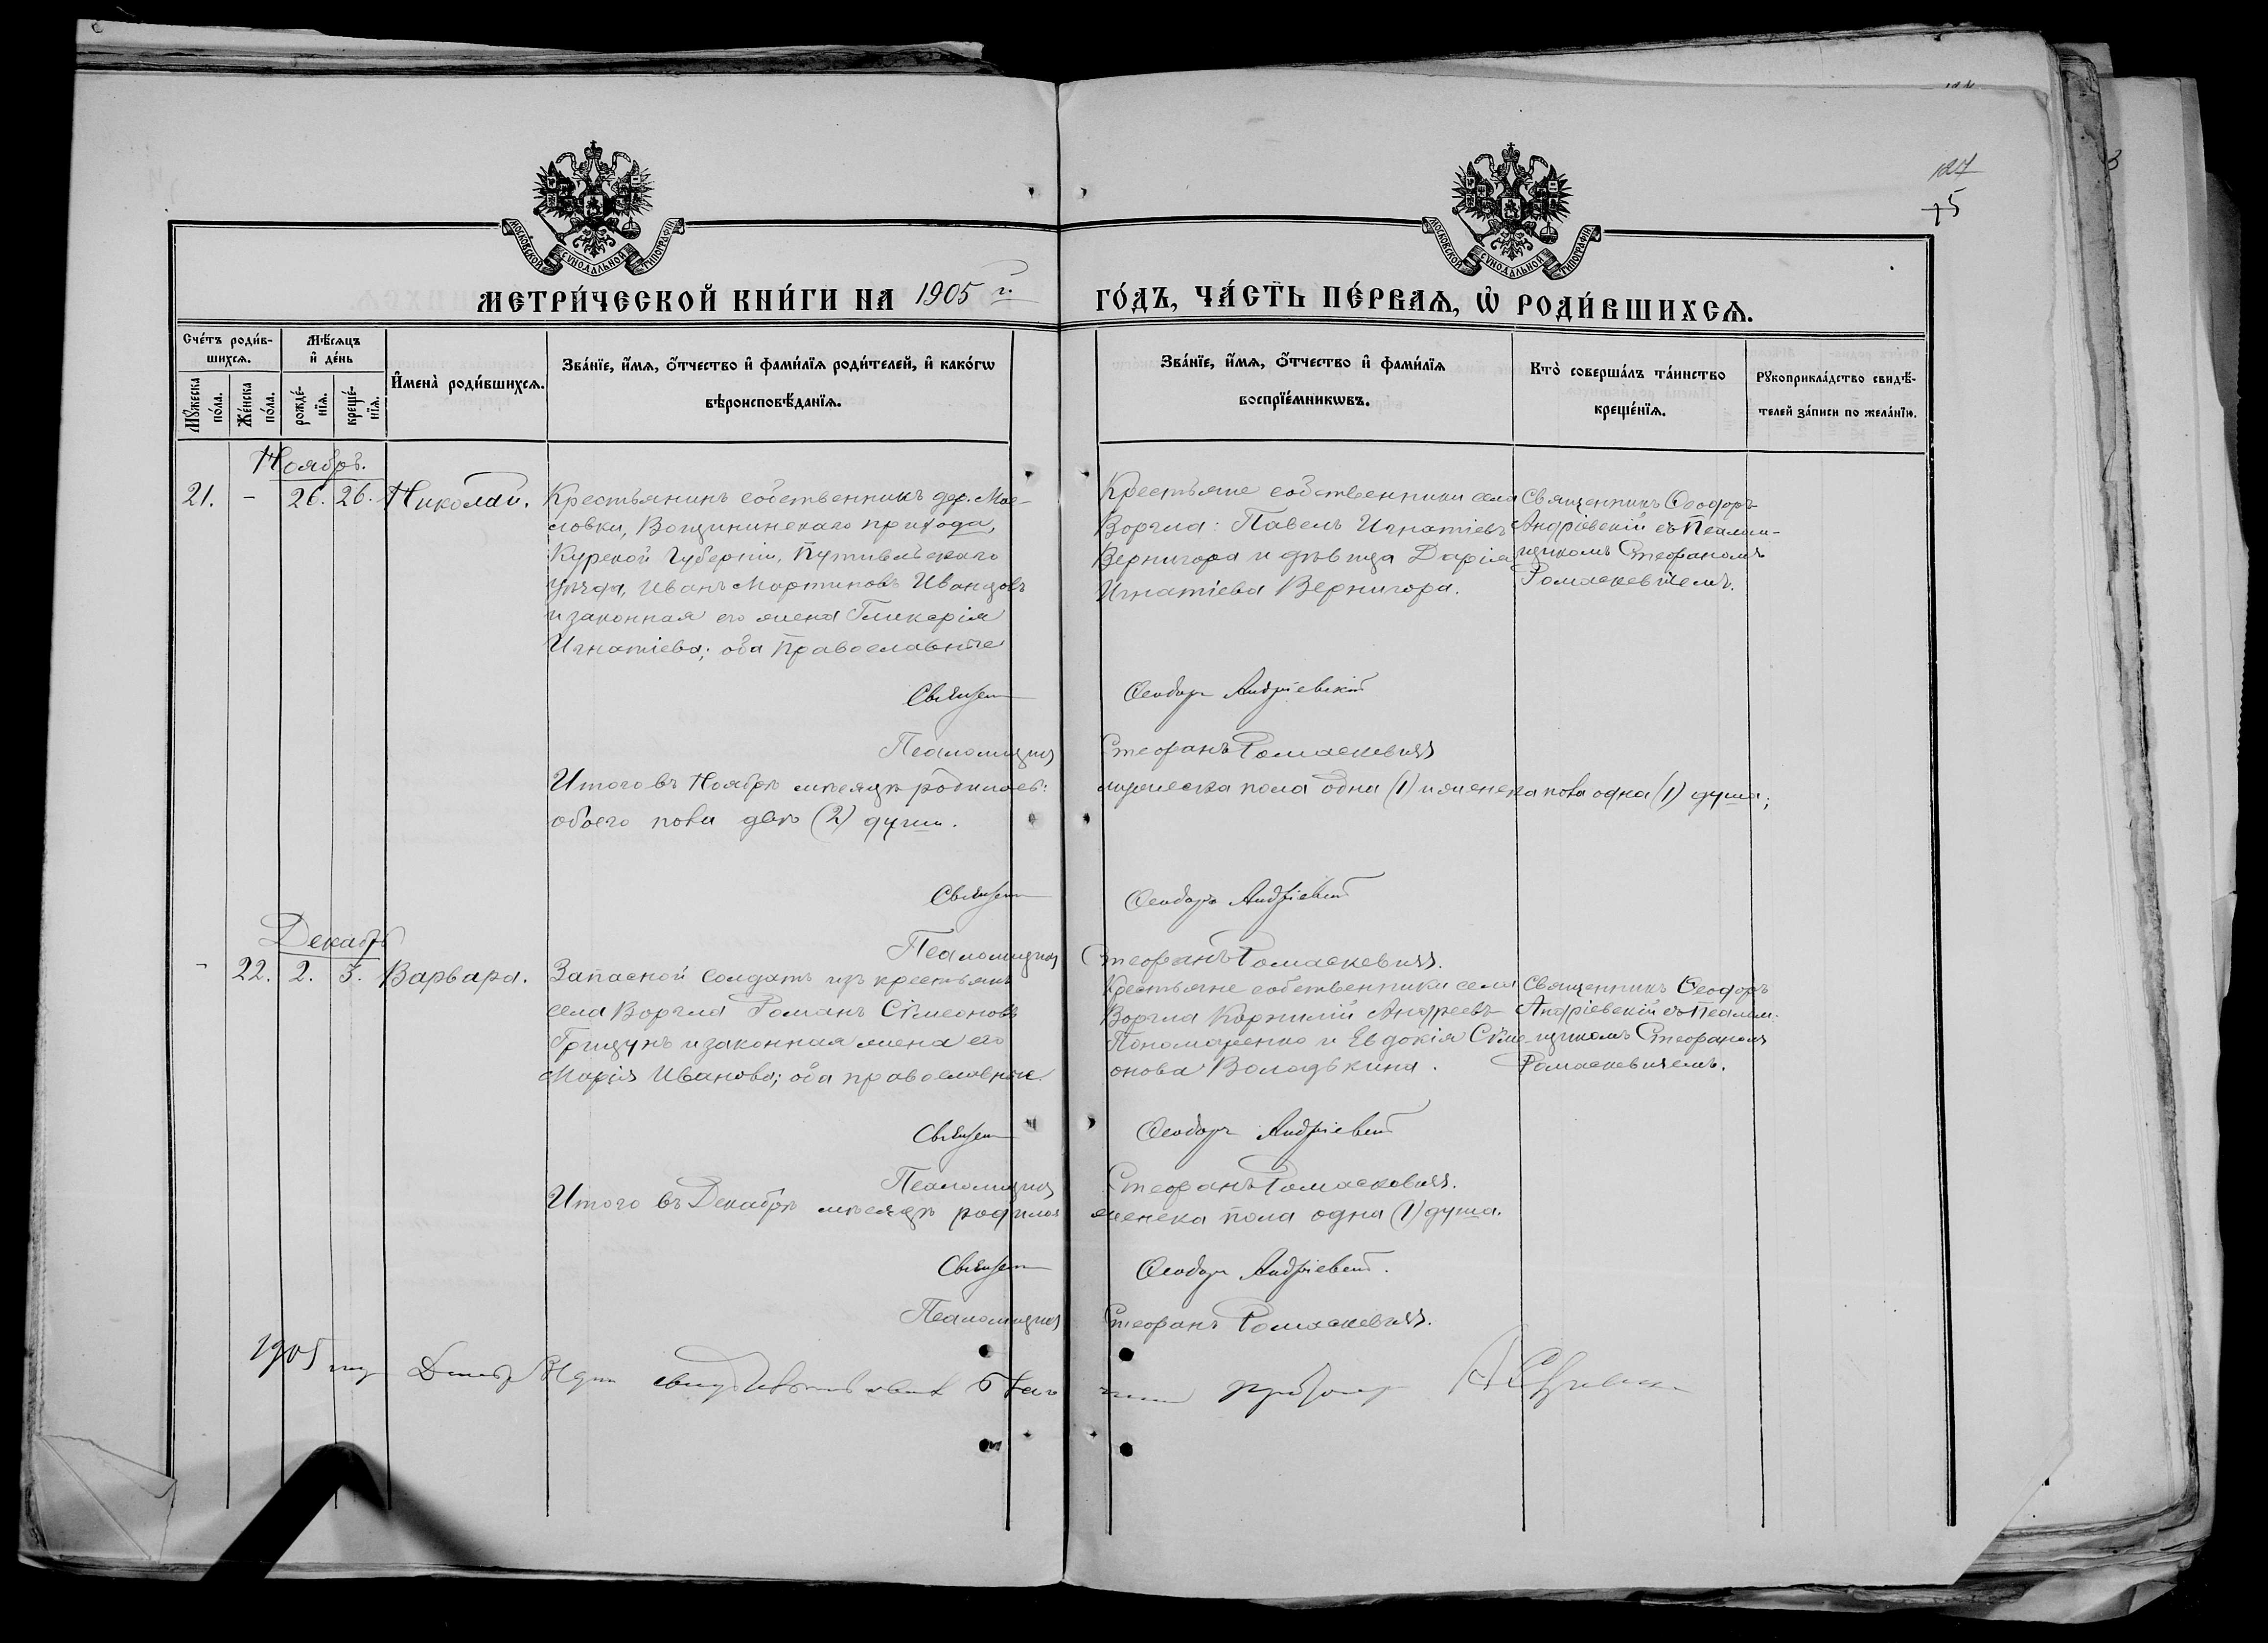 127
15
МОСКОВСКОЙ СѴНОДАЛЬНОЙ ТИПОГРАФІИ
МОСКОВСКОЙ СѴНОДАЛЬНОЙ ТИПОГРАФІИ
МЕТРИ́ЧЕСКОЙ КНИ́ГИ НА 1905 г. ГО́ДЪ, ЧА́СТЬ ПЕ́РВАѦ, Ѡ҆ РОДИ́ВШИХСѦ.
Сче́тъ роди́в-
шихсѧ.
Мѣ́сяцъ
и҆ де́нь
Мꙋ́жеска по́ла.
Же́нска по́ла.
рожде́-нїѧ.
креще́-нїѧ.
И҆мена̀ роди́вшихсѧ.
Зва́нїе, и҆́мѧ, ѻ҆́тчество и҆ фами́лїѧ роди́телей, и҆ како́гѡ
вѣроисповѣ́данїѧ.
Зва́нїе, и҆́мѧ, ѻ҆́тчество и҆ фами́лїѧ
воспрїе́мникѡвъ.
Кто̀ соверша́лъ та́инство
креще́нїѧ.
Рꙋкоприкла́дство свидѣ́-
телей за́писи по жела́нїю.
Ноябрь.
21. - 26. 26. Николай.
Крестьянинъ собственникъ дер. Мас-
ловки, Вощининскаго прихода,
Курской Губерніи, Путивльскаго
уѣзда, Иванъ Мартиновъ Иванцовъ
и законная его жена Гликерія
Игнатіева; оба Православные
Крестьяне собственники села
Воргла: Павелъ Игнатіевъ
Вернигора и дѣвица Дарія
Игнатіева Вернигора.
Священникъ Ѳеодоръ
Андріевскій съ Псалом-
щикомъ Стефаномъ
Ромаскевичемъ.
Священ Ѳеодоръ Андріевскій
Псаломщикъ Стефанъ Ромаскевичъ
Итого въ Ноябрѣ мѣсяцѣ родилось: мужеска пола одна (1) и женска пола одна (1) душа;
обоего пола двѣ (2) души.
Священ Ѳеодоръ Андріевскій
Псаломщикъ Стефанъ Ромаскевичъ.
Декабрь
- 22. 2. 3. Варвара.
Запасной солдатъ изъ крестьянъ
села Воргла Романъ Сѵмеоновъ
Грицунъ и законная жена его
Марія Иванова; оба православные.
Крестьяне собственники села
Воргла Корнилій Андреевъ
Пономаренко и Евдокія Сѵме-
онова Володькина.
Священникъ Ѳеодоръ
Андріевскій съ Псалом-
щикомъ Стефаномъ
Ромаскевичемъ.
Священ Ѳеодоръ Андріевскій
Псаломщикъ Стефанъ Ромаскевичъ.
Итого въ Декабрѣ мѣсяцѣ родилось женска пола одна (1) душа.
Священ Ѳеодоръ Андріевскій.
Псаломщикъ Стефанъ Ромаскевичъ.
1905